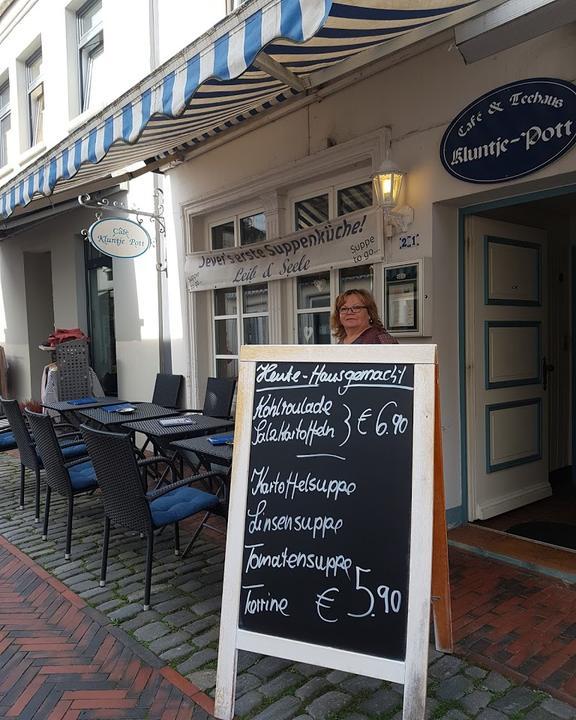 Café & Teehaus
Kluntje-Pott
Café
Kluntje Pott
Jever's erste Suppenküche!
Leib & Seele
Suppe
to go...
Heute-Hausgemacht
Kohlroulade
Salzkartoffeln } € 6.90
Kartoffelsuppe
Linsensuppe
Tomatensuppe
Terrine € 5.90